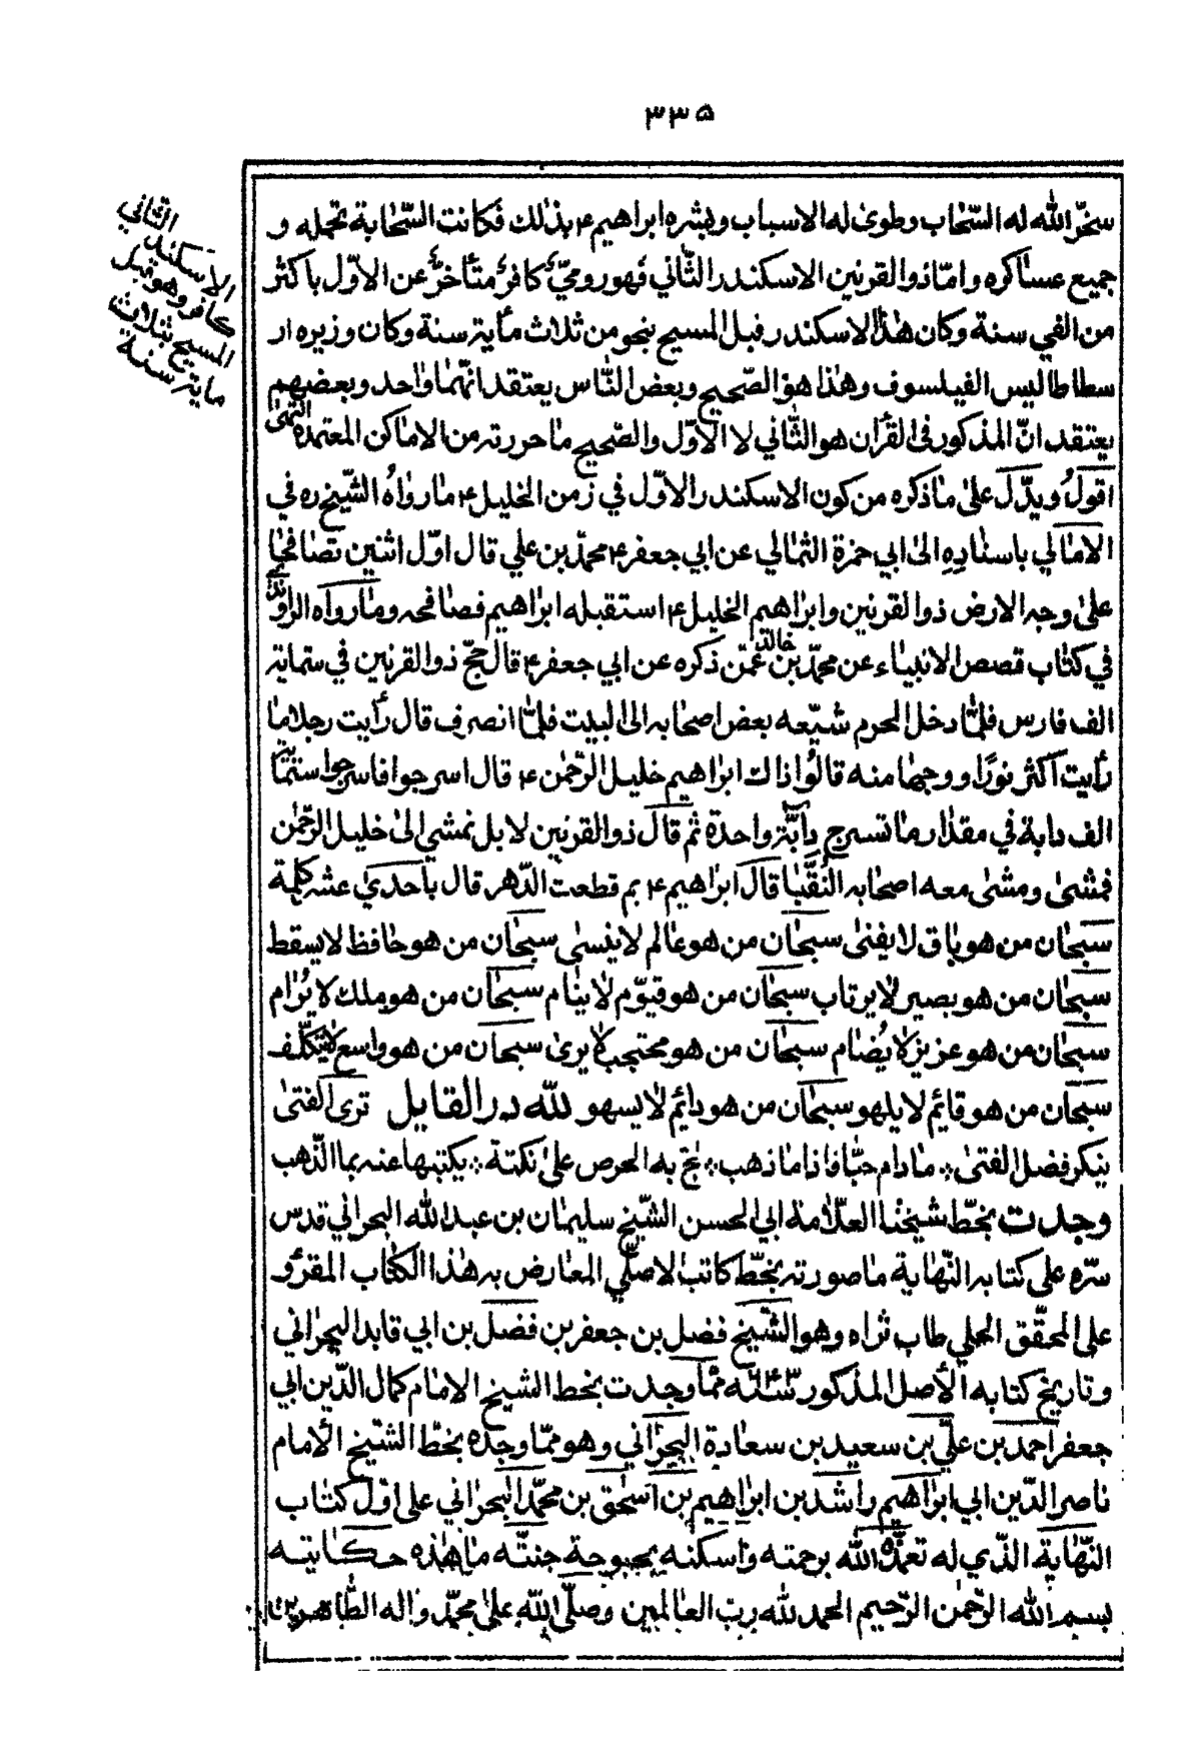 ۳۳۵
سخّر الله له السّحاب وطوى له الاسباب وبشره ابراهيم ۴ بذلك فكانت السّحابة تحمله و
جميع عساكره وامّا ذوالقرنين الاسكندر الثّاني فهو روميّ كافر متأخّر عن الاوّل باكثر
من الفي سنة وكان هذا الاسكندر قبل المسيح بنحو من ثلاث مأية سنة وكان وزيره ار
سطاطاليس الفيلسوف وهذا هو الصّحيح وبعض النّاس يعتقد انّهما واحد وبعضهم
يعتقد انّ المذكور في القرآن هو الثّاني لا الاوّل والصّحيح ما حررته من الاماكن المعتمدة انتهى
اقول ويدّل على ما ذكره من كون الاسكندر الاوّل في زمن الخليل ۴ ما رواه الشّيخ ره في
الامالي باسناده الى ابي حمزة الثمالي عن ابي جعفر ۴ محمّد بن علي قال اوّل اثنين تصافحا
على وجه الارض ذوالقرنين وابراهيم الخليل ۴ استقبله ابراهيم فصافحه وما رواه الراوندي
في كتاب قصص الانبياء عن محمّد بن خالد عمّن ذكره عن ابي جعفر ۴ قال حجّ ذوالقرنين في ستماية
الف فارس فلمّا دخل الحرم شيّعه بعض اصحابه الى البيت فلمّا انصرف قال رأيت رجلا ما
رأيت اكثر نورًا ووجها منه قالوا ذاك ابراهيم خليل الرّحمن ۴ قال اسرجوا فاسرجوا ستماية
الف دابة في مقدار ما تسرج دابّة واحدة ثم قال ذوالقرنين لا بل نمشي الى خليل الرّحمن
فمشى ومشى معه اصحابه النُقَّبا قال ابراهيم ۴ بم قطعت الدّهر قال باحدي عشر كلمة
سبحان من هو باق لا يفنى سبحان من هو عالم لا ينسى سبحان من هو حافظ لا يسقط
سبحان من هو بصير لا يرتاب سبحان من هو قيّوم لا ينام سبحان من هو ملك لا يُرام
سبحان من هو عزيز لا يُضام سبحان من هو محتجب لا يرى سبحان من هو واسع لا يتكلّف
سبحان من هو قائم لا يلهو سبحان من هو دائم لا يسهو لله در القايل ترى الفتى
ينكر فضل الفتى ؞ ما دام حيًّا فاذا ما ذهب ؞ لج به الحرص على نكتة ؞ يكتبها عنه بما الذّهب
وجدت بخطّ شيخنا العلّامة ابي الحسن الشّيخ سليمان بن عبد الله البحراني قدس
سرّه على كتابه النّهاية ما صورته بخطّ كاتب الاصلّي المعارض به هذا الكتاب المقرؤ
على المحقّق الحلي طاب ثراه وهو الشّيخ فضل بن جعفر بن فضل بن ابي قايد البحراني
وتاريخ كتابه الأصل المذكور سنة ممّا وجدت بخط الشيخ الامام كمال الدّين ابي
جعفر احمد بن عليّ بن سعيد بن سعادة البحراني وهو ممّا وجده بخطّ الشّيخ الأمام
ناصر الدّين ابي ابراهيم راشد بن ابراهيم بن اسحق بن محمّد البحراني على اوّل كتاب
النّهاية الذّي له تغمّده الله برحمته واسكنه بحبوحة جنتّه ما هذه حكايته
بسم الله الرّحمن الرّحيم الحمد لله ربّ العالمين وصلّى الله على محمّد واله الطّاهرين
الثّاني
الاسكندر
كافر وهو قبل
المسيح بثلاث
ماية سنة